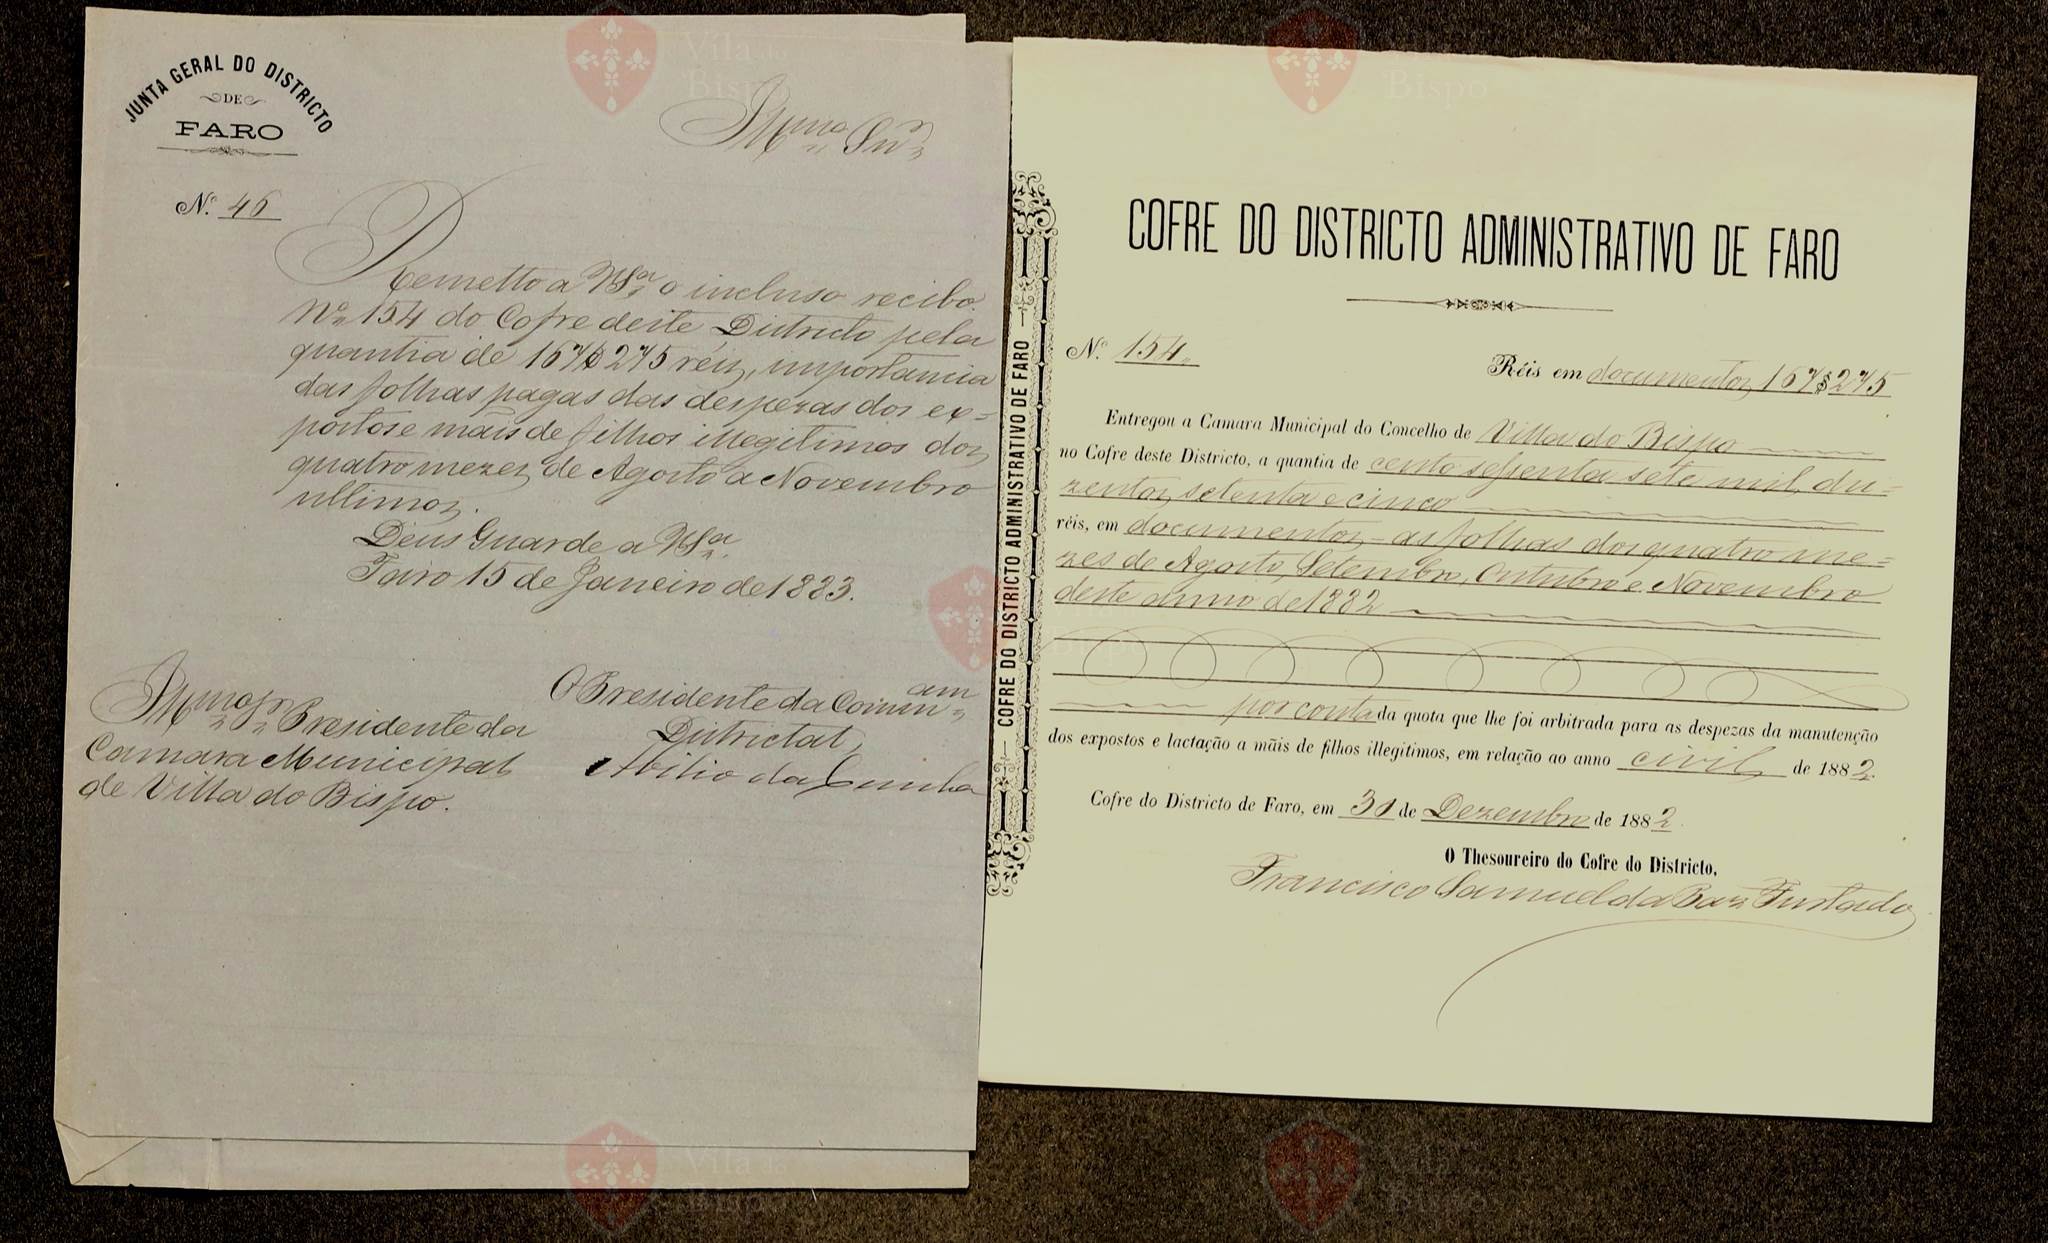 JUNTA GERAL DO DISTRICTO
DE
FARO
Nº 46
Illmo Snr
Remetto a VSª o incluso recibo
Nº 154 do Cofre deste Districto pela
quantia de 167$275 réis, importancia
das folhas pagas das despezas dos ex-
postos e mães de filhos illegitimos dos
quatro mezes de Agosto a Novembro
ultimos.
Deus Guarde a VSª
Faro 15 de Janeiro de 1883.
Illmo Sr Presidente da
Camara Municipal
de Villa do Bispo.
O Presidente da Commam
Districtal,
Abilio da Cunha
COFRE DO DISTRICTO ADMINISTRATIVO DE FARO
COFRE DO DISTRICTO ADMINISTRATIVO DE FARO
COFRE DO DISTRICTO ADMINISTRATIVO DE FARO
Nº 154
Réis em documentos 167$275
Entregou a Camara Municipal do Concelho de Villa do Bispo
no Cofre deste Districto, a quantia de cento sessenta sete mil du-
zentos setenta e cinco
réis, em documentos - as folhas dos quatro me-
zes de Agosto, Setembro, Outubro e Novembro
deste anno de 1882
por conta da quota que lhe foi arbitrada para as despezas da manutenção
dos expostos e lactação a mãis de filhos illegitimos, em relação ao anno civil de 1882.
Cofre do Districto de Faro, em 31 de Dezembro de 1882
O Thesoureiro do Cofre do Districto,
Francisco Samuel da Paz Furtado
Vila do
Bispo
Vila do
Bispo
Bispo
Vila do
Bispo
Vila do
Bispo